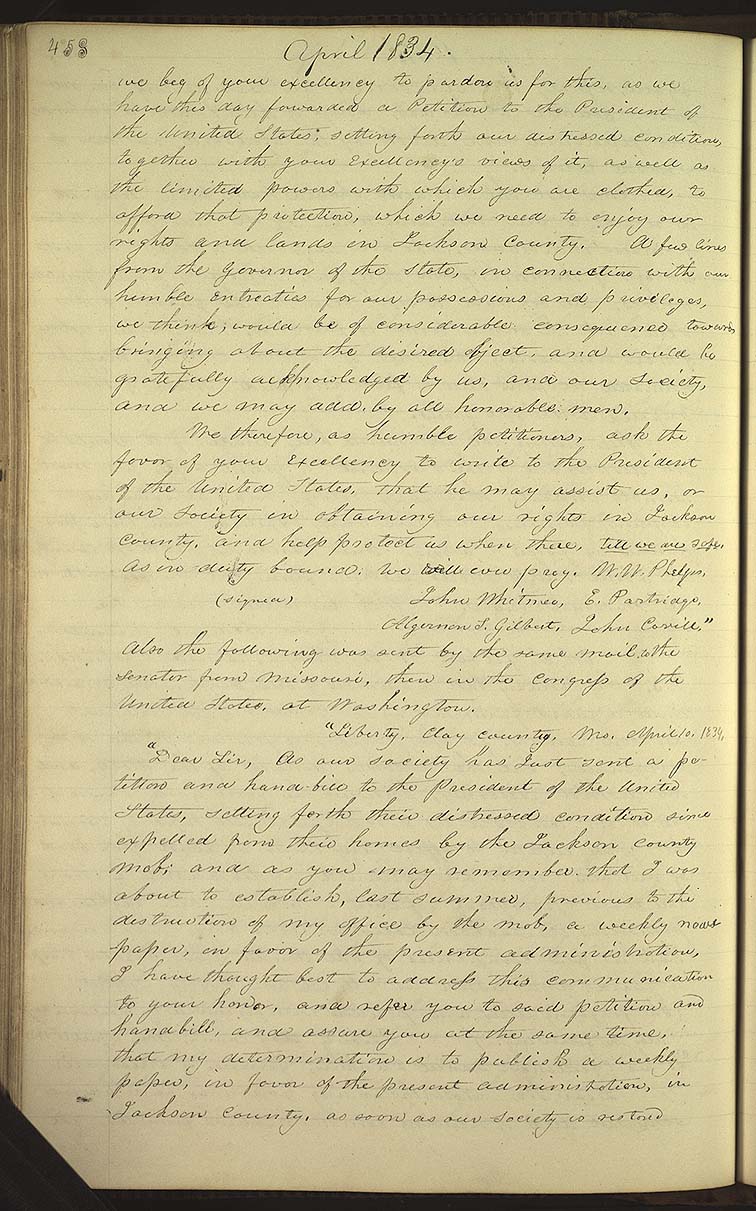 458
April 1834.
we beg of your excellency to pardon us for this, as we
have this day fowarded a Petition to the President of
the United States; setting forth our distressed condition,
together with your Excellency's views of it, as well as
the limited powers with which you are clothed, to
afford that protection, which we need to enjoy our
rights and lands in Jackson County. A few lines
from the Governor of the State, in connection with our
humble entreaties for our possessions and privileges,
we think; would be of considerable consequence towards
bringing about the disired object, and would be
gratefully acknowledged by us, and our Society,
and we may add, by all honorable men.
We therefore, as humble petitioners, ask the
favor of your Excellency to write to the President
of the United States, that he may assist us, or
our Society in obtaining our rights in Jackson
County, and help protect us when there, till we are safe.
As in duty bound, we will ever pray. W. W. Phelps,
(signed) John Whitmer, E. Partridge,
Algernon S. Gilbert, John Corrill,"
Also the following was sent by the same mail to the
Senator from Missouri, then in the Congress of the
United States, at Washington.
"Liberty, Clay county, Mo. April 10, 1834.
"Dear Sir, As our society has just sent a pe-
tition and hand-bill to the President of the United
States, setting forth their distressed condition since
expelled from their homes by the Jackson county
mob; and as you may remember that I was
about to establish, last summer, previous to the
destruction of my office by the mob, a weekly news
paper, in favor of the present administration,
I have thought best to address this communication
to your honor, and refer you to said petition and
handbill, and assure you at the same time,
that my determination is to publish a weekly
paper, in favor of the present administration, in
Jackson County, as soon as our society is restored